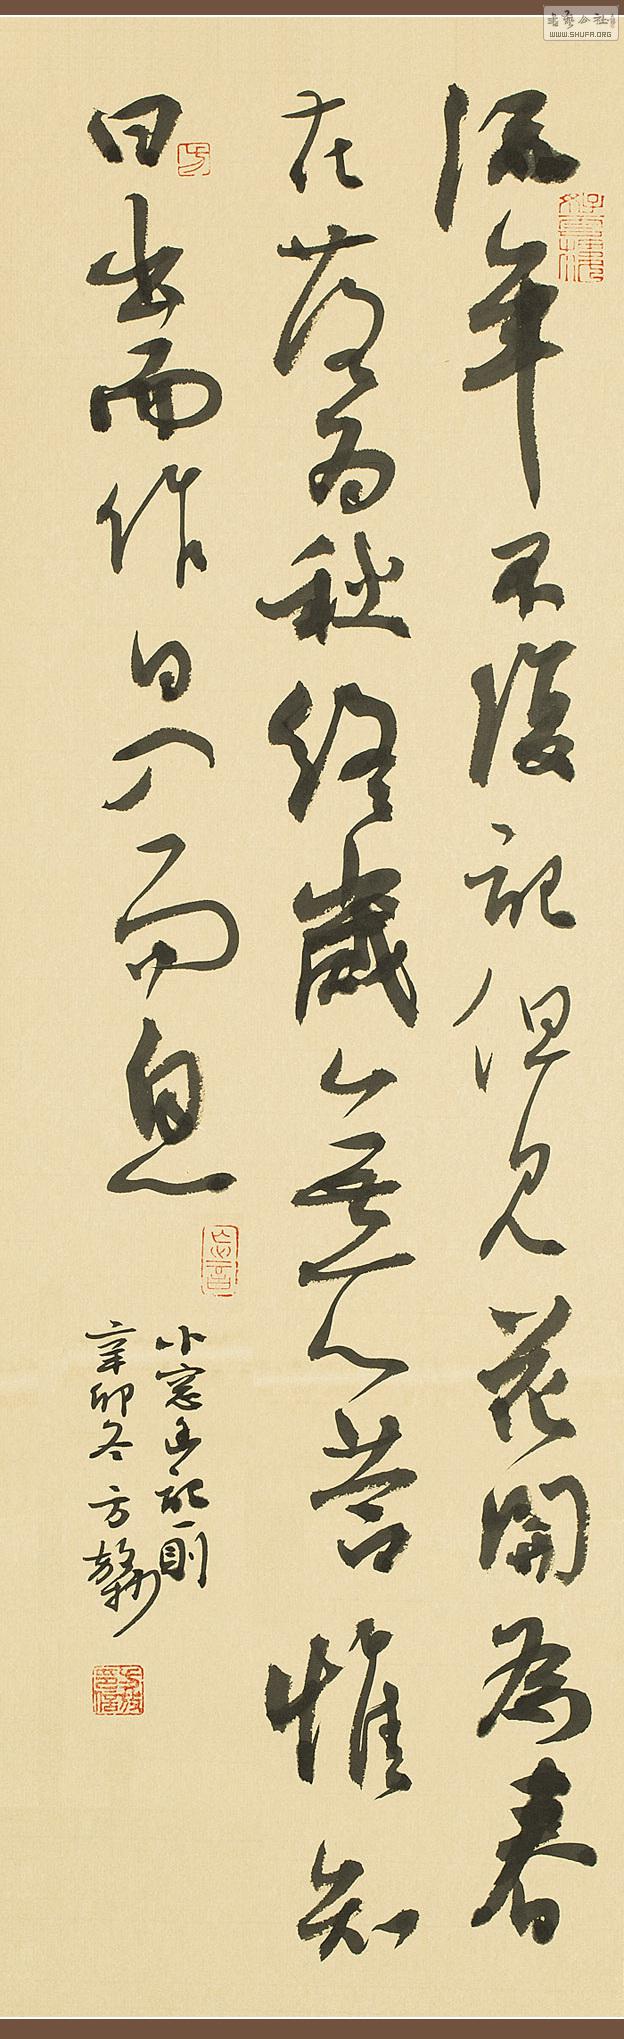 書藝公社
WWW.SHUFA.ORG
流年不復記但見花開為春
花落為秋終歲無所營惟知
日出而作日入而息
小窗幽記一則
辛卯冬方
忘言